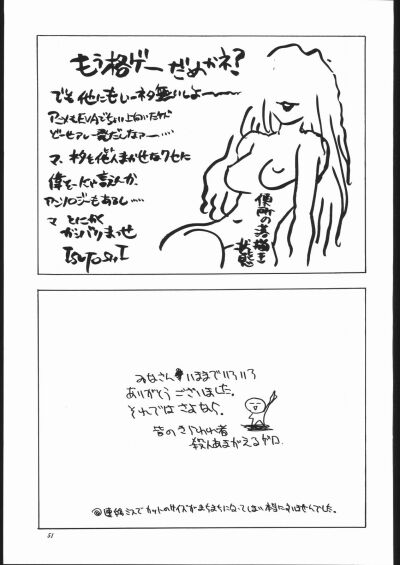 もう格ゲーだめかネ?
でも他にもいーネタ無いしよ〜〜
アニメもEVAでちょい上向いたケド
どーせアレ一発だしなァー・・・・
マ、ネタを他人まかせなクセに
偉そーにゃ言えんか
アンソロジーもあるし・・・・
マ とにかく
ガンバりませ
TSuToShi I
便所の落描き
状態
みなさん いままでいろいろ
ありがとうございました。
それではさよなら。
皆のきらわれ者
殺人あまがえるゲロ
◎連絡ミスでカットのサイズがまちまちになってしまい本当にすいませんでした。
51